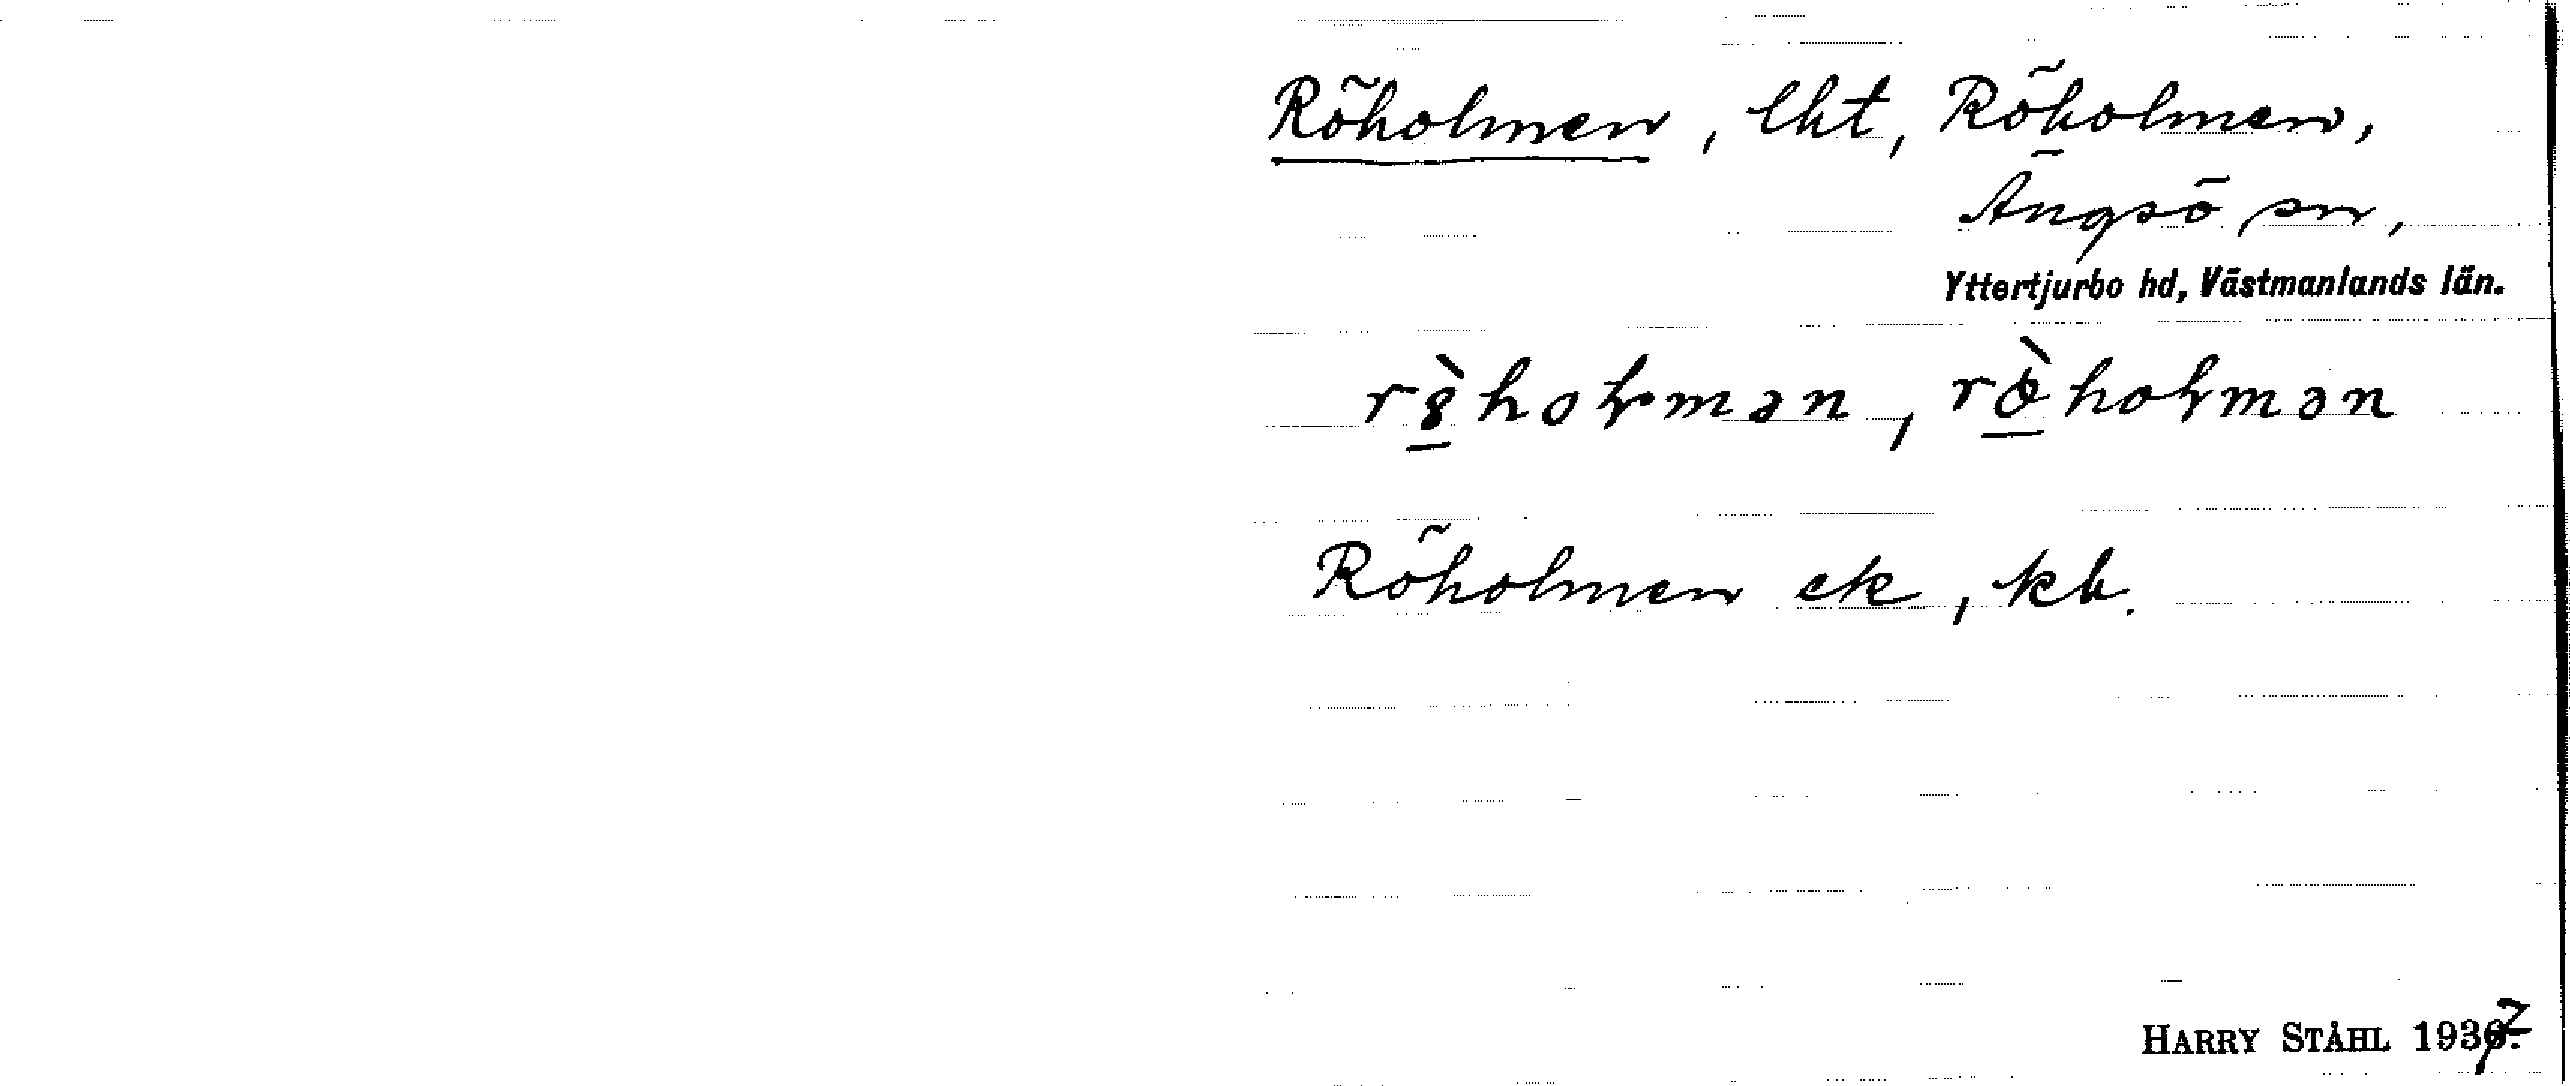 Röholmen, lht, Röholmen,
Ängsö sn,
Yttertjurbo hd, Västmanlands län.
Röholmen ek, kb.
HARRY STÅHL 1937.